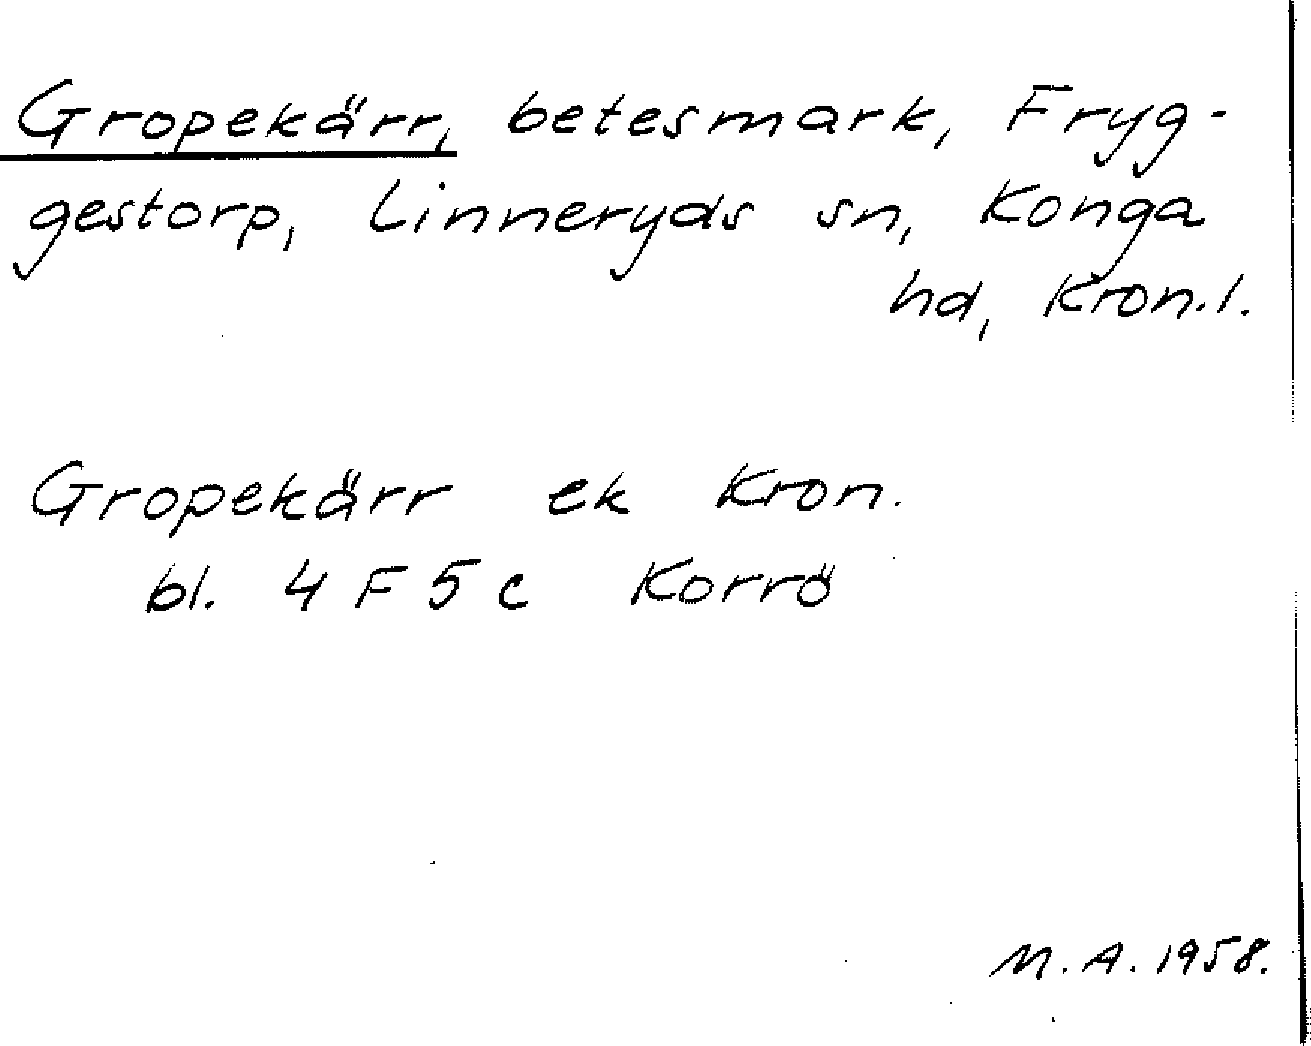 Gropekärr, betesmark, Fryg-
gestorp, Linneryds sn, Konga
hd, Kron.l.
Gropekärr ek Kron.
bl. 4 F 5 c Korrö
M.A. 1958.